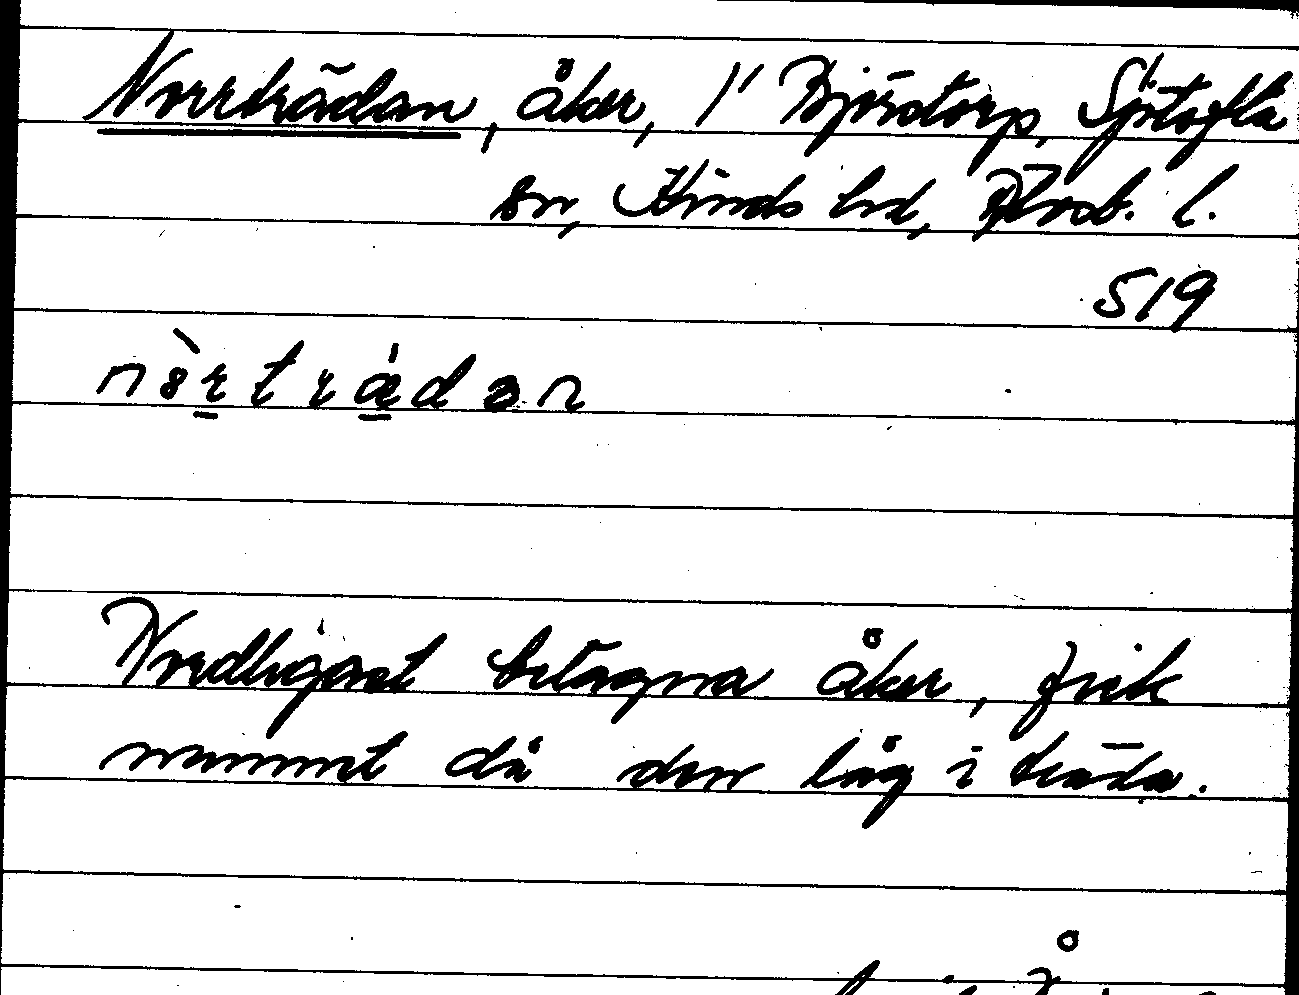 Norrträdan, åker, 1' Bjōrstorp, Sjötofta
sn, Kinds hd, Älvsb. l.
519
Nordligast belägna åker, fick
namnet då den låg i träda.